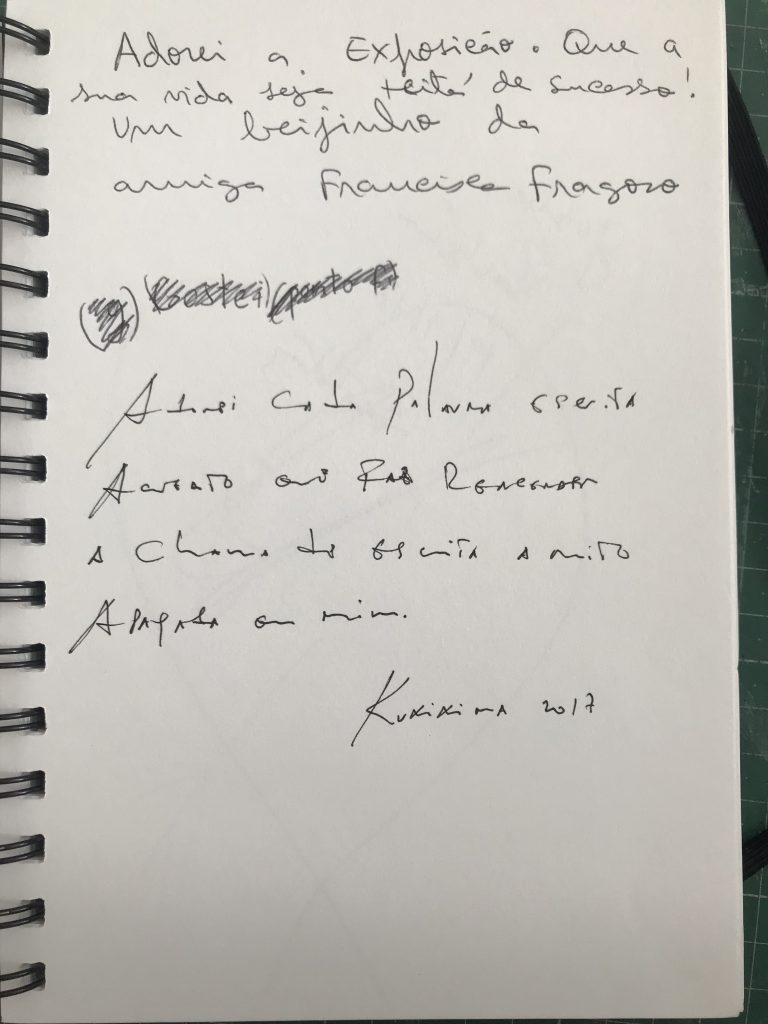 Adorei a Exposição. Que a
sua vida seja feita de sucesso!
Um beijinho da
amiga Francisca Fragoso
Adorei cada Palavra escrita
Acredito que
a chama da escrita a muito
Apagada em mim.
Kuxixima 2017